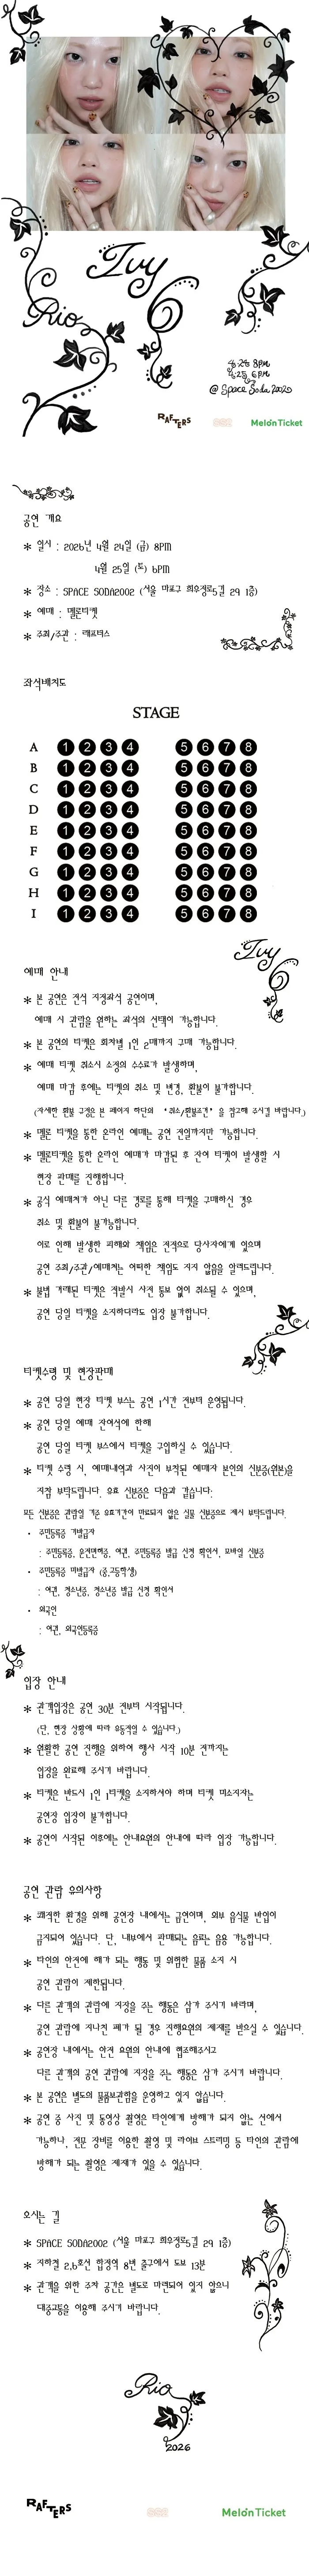 Ivy
Rio
6
4월 24일 8PM
4월 25일 6PM
@ Space Soda 2002
RAFTERS
MelonTicket
공연 개요
* 일시 : 2026년 4월 24일 (금) 8PM
4월 25일 (토) 6PM
* 장소 : SPACE SODA2002 (서울 마포구 희우정로5길 29 1층)
* 예매 : 멜론티켓
* 주최/주관 : 래프터스
좌석배치도
STAGE
A 1 2 3 4 5 6 7 8
B 1 2 3 4 5 6 7 8
C 1 2 3 4 5 6 7 8
D 1 2 3 4 5 6 7 8
E 1 2 3 4 5 6 7 8
F 1 2 3 4 5 6 7 8
G 1 2 3 4 5 6 7 8
H 1 2 3 4 5 6 7 8
I 1 2 3 4 5 6 7 8
Ivy
6
예매 안내
* 본 공연은 전석 지정좌석 공연이며,
예매 시 관람을 원하는 좌석의 선택이 가능합니다.
* 본 공연의 티켓은 회차별 1인 2매까지 구매 가능합니다.
* 예매 티켓 취소시 소정의 수수료가 발생하며,
예매 마감 후에는 티켓의 취소 및 변경, 환불이 불가합니다.
(자세한 환불 규정은 본 페이지 하단의 "취소/환불조건"을 참고해 주시길 바랍니다.)
* 멜론 티켓을 통한 온라인 예매는 공연 전일까지만 가능합니다.
* 멜론티켓을 통한 온라인 예매가 마감된 후 잔여 티켓이 발생할 시
현장 판매를 진행합니다.
* 공식 예매처가 아닌 다른 경로를 통해 티켓을 구매하신 경우
취소 및 환불이 불가능합니다.
이로 인해 발생한 피해와 책임은 전적으로 당사자에게 있으며
공연 주최/주관/예매처는 어떠한 책임도 지지 않음을 알려드립니다.
* 불법 거래된 티켓은 적발시 사전 통보 없이 취소될 수 있으며,
공연 당일 티켓을 소지하더라도 입장 불가합니다.
티켓수령 및 현장판매
* 공연 당일 현장 티켓 부스는 공연 1시간 전부터 운영됩니다.
* 공연 당일 예매 잔여석에 한해
공연 당일 티켓 부스에서 티켓을 구입하실 수 있습니다.
* 티켓 수령 시, 예매내역과 사진이 부착된 예매자 본인의 신분증(원본)을
지참 부탁드립니다. 유효 신분증은 다음과 같습니다:
모든 신분증은 관람일 기준 유효기간이 만료되지 않은 실물 신분증으로 제시 부탁드립니다.
• 주민등록증 기발급자
: 주민등록증, 운전면허증, 여권, 주민등록증 발급 신청 확인서, 모바일 신분증
• 주민등록증 미발급자 (중,고등학생)
: 여권, 청소년증, 청소년증 발급 신청 확인서
• 외국인
: 여권, 외국인등록증
입장 안내
* 관객입장은 공연 30분 전부터 시작됩니다.
(단, 현장 상황에 따라 유동적일 수 있습니다.)
* 원활한 공연 진행을 위하여 행사 시작 10분 전까지는
입장을 완료해 주시기 바랍니다.
* 티켓은 반드시 1인 1티켓을 소지하셔야 하며 티켓 미소지자는
공연장 입장이 불가합니다.
* 공연이 시작된 이후에는 안내요원의 안내에 따라 입장 가능합니다.
공연 관람 유의사항
* 쾌적한 환경을 위해 공연장 내에서는 금연이며, 외부 음식물 반입이
금지되어 있습니다. 단, 내부에서 판매되는 음료는 음용 가능합니다.
* 타인의 안전에 해가 되는 행동 및 위험한 물품 소지 시
공연 관람이 제한됩니다.
* 다른 관객의 관람에 지장을 주는 행동은 삼가 주시기 바라며,
공연 관람에 지나친 폐가 될 경우 진행요원의 제재를 받으실 수 있습니다.
* 공연장 내에서는 안전 요원의 안내에 협조해주시고
다른 관객의 공연 관람에 지장을 주는 행동은 삼가 주시기 바랍니다.
* 본 공연은 별도의 물품보관함을 운영하고 있지 않습니다.
* 공연 중 사진 및 동영상 촬영은 타인에게 방해가 되지 않는 선에서
가능하나, 전문 장비를 이용한 촬영 및 라이브 스트리밍 등 타인의 관람에
방해가 되는 촬영은 제재가 있을 수 있습니다.
오시는 길
* SPACE SODA2002 (서울 마포구 희우정로5길 29 1층)
* 지하철 2,6호선 합정역 8번 출구에서 도보 13분
* 관객을 위한 주차 공간은 별도로 마련되어 있지 않으니
대중교통을 이용해 주시기 바랍니다.
Rio
2026
RAFTERS
MelonTicket